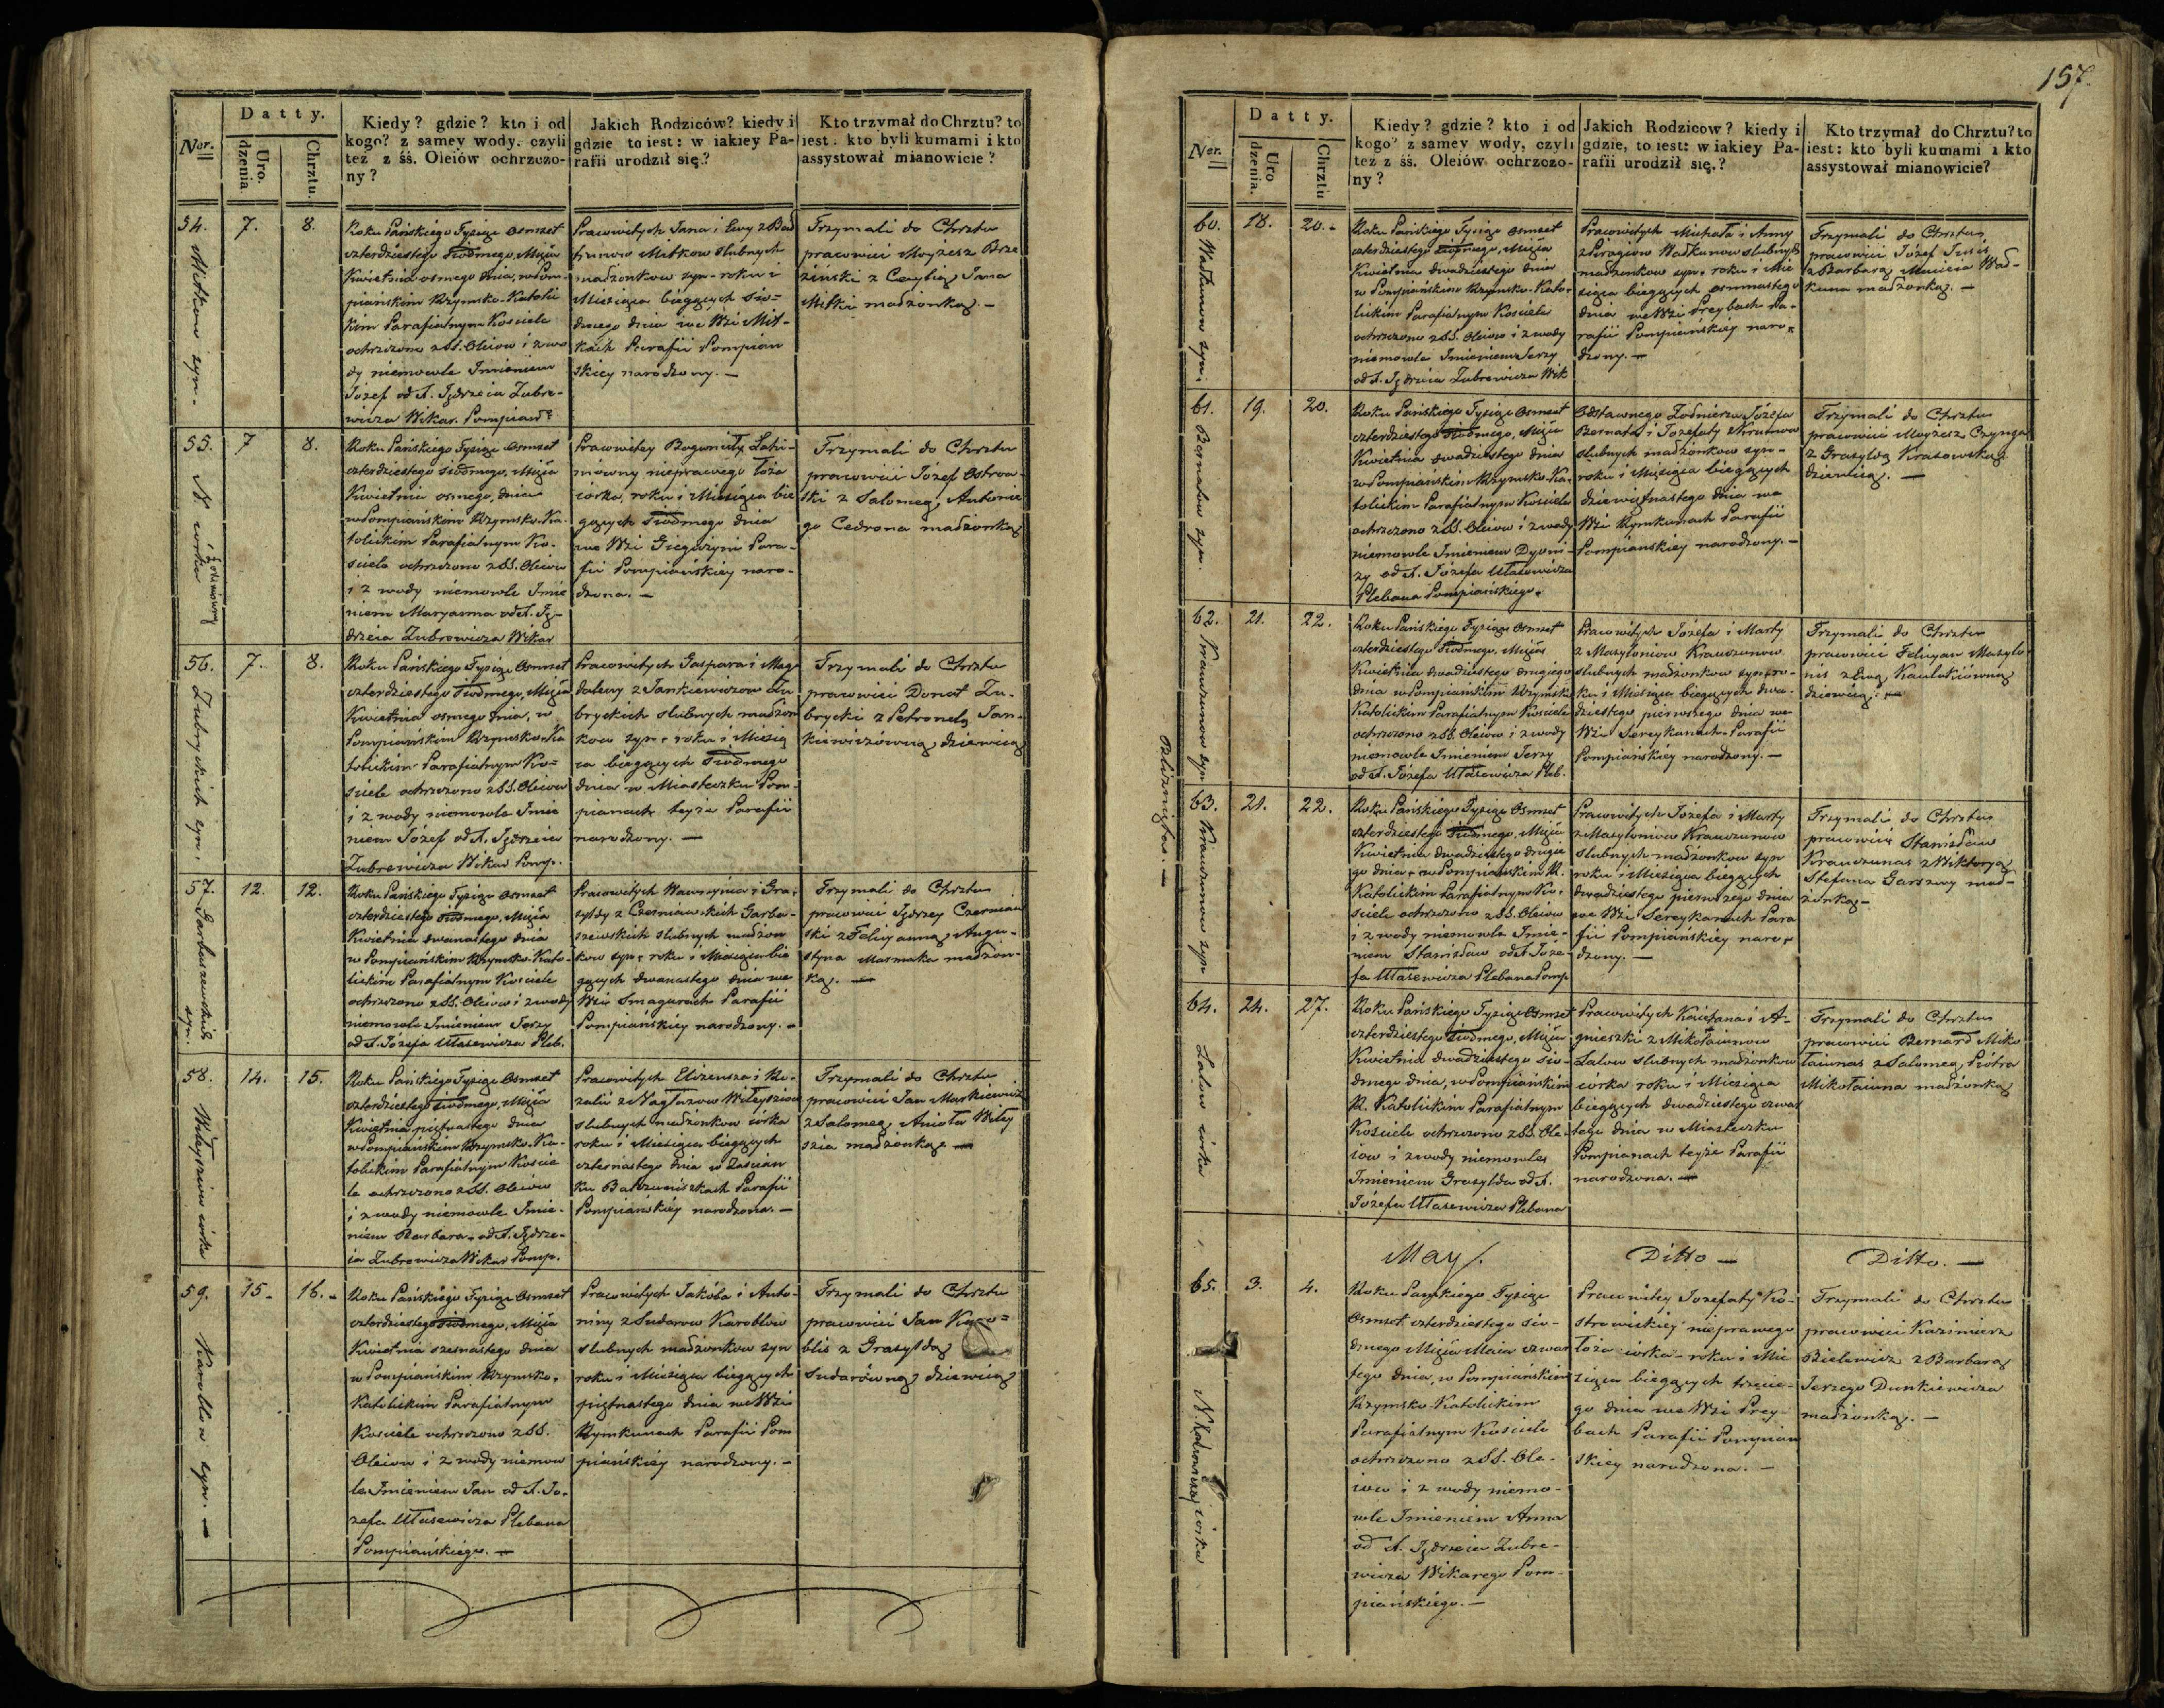 Ner.
Datty.
Uro.
dzenia
Chrztu.
Kiedy? gdzie? kto i od
kogo? z samey wody. czyli
tez z śś. Oleiów ochrzczo-
ny?
Jakich Rodziców? kiedy i
gdzie to iest: w iakiey Pa-
rafii urodził się?
Kto trzymał do Chrztu? to
iest. kto byli kumami i kto
assystował mianowicie?
54.
Mitkow syn.
7.
8.
Roku Pańskiego Tysiąc Osmset
czterdziestego Siodmego, Mięsią
Kwietnia osmego dnia, w Pom-
piańskim Rzymsko-Katolic
kim Parafialnym Kosciele
ochrzczono z SS. Oleiow i z wo
dy niemowle Imieniem
Jozef od X. Jędrzeia Zubre-
wicza Wikar. Pompian
Pracowitych Jana i Ewy z
Mitkow slubnych
małżonkow syn- roku i
Miesiąca biegących sio-
dmego dnia we Wsi Mit-
kach Parafii Pompian
skiey narodzony. —
Trzymali do Chrztu
pracowici Moyżesz Brze
zinski z Cecylią Jana
Mitki małżonką. —
55.
N. Łotwinowny
córka
7
8.
Roku Pańskiego Tysiąc Osmset
czterdziestego siodmego, Mięsią
Kwietnia osmego, dnia
w Pompiańskim Rzymsko-Ka-
tolickim Parafialnym Ko-
sciele ochrzczono z SS. Oleiow
i z wody niemowle Imie
niem Maryanna od X. Ję-
drzeia Zubrewicza Wikar
Pracowitey Bogumiły
nieprawego łoża
corka, roku i Miesiąca bie
gących Siodmego dnia
we Wsi Gieguzyni Para-
fii Pompiańskiey naro-
dzona. —
Trzymali do Chrztu
pracowici Józef Ostrow-
ski z Salomeą Antonie
go Cedrona małżonką
56.
Zubryckich syn.
7.
8.
Roku Pańskiego Tysiąc Osmset
czterdziestego Siodmego, Mięsią
Kwietnia osmego dnia, w
Pompiańskim Rzymsko-Ka
tolickim Parafialnym Ko-
sciele ochrzczono z SS. Oleiow
i z wody niemowle Imie
niem Józef od X. Jędrzeia
Zubrewicza Wikar. Pomp.
Pracowitych Gaspara i Mag
daleny z Jankiewiczow Zu
bryckich slubnych małżon
kow syn, roku i Miesią
ca biegących Siodmego
dnia w Miasteczku Pom-
pianach teyże Parafii
narodzony. —
Trzymali do Chrztu
pracowici Donat Zu-
brycki z Petronelą Jan-
kiewiczówną dziewicą
57.
Garbaszewskich
syn.
12.
12.
Roku Pańskiego Tysiąc Osmset
czterdziestego siodmego, Mięsią
Kwietnia dwunastego dnia
w Pompiańskim Rzymsko-Kato-
lickim Parafialnym Kosciele
ochrzczono z SS. Oleiow i z wody
niemowle Imieniem Jerzy
od X. Jozefa Ułasewicza Pleb.
Pracowitych Wawrzyńca i Gra-
zyldy z Czerniawskich Garba-
szewskich slubnych małżon
kow syn, roku i Miesiąca bie
gących dwunastego dnia we
Wsi Smagurach Parafii
Pompiańskiey narodzony. —
Trzymali do Chrztu
pracowici Jędrzey Czerniaw
ski z Felicyanną Augu-
styna Marmaka małżon-
ką. —
58.
córka
14.
15.
Roku Pańskiego Tysiąc Osmset
czterdziestego Siodmego, Mięsią
Kwietnia piętnastego dnia
w Pompiańskim Rzymsko-Ka-
tolickim Parafialnym Koscie
le ochrzczono z SS. Oleiow
i z wody niemowle Imie-
niem Barbara, od X. Jędrze-
ia Zubrewicza Wikar. Pomp.
Pracowitych Elizeusza i Ro-
zalii z
slubnych małżonkow córka
roku i Miesiąca biegących
czternastego dnia w Zaścian
ku Parafii
Pompiańskiey narodzona. —
Trzymali do Chrztu
pracowici Jan Markiewicz
z Salomeą Anioła
szia małżonką —
59.
Karobla syn. —
15.
16.
Roku Pańskiego Tysiąc Osmset
czterdziestego Siodmego, Mięsią
Kwietnia szesnastego dnia
w Pompiańskim Rzymsko-
Katolickim Parafialnym
Kosciele ochrzczono z SS.
Oleiow i z wody niemow
le Imieniem Jan od X. Jo-
zefa Ułasewicza Plebana
Pompiańskiego. —
Pracowitych Jakóba i Anto-
niny z Sudarow Karoblow
slubnych małżonkow syn
roku i Miesiąca biegących
piętnastego dnia we Wsi
Rymkunach Parafii Pom
piańskiey narodzony. —
Trzymali do Chrztu
pracowici Jan Karo-
blis z Grasyldą
Sudarówną dziewicą
157.
Ner.
Datty.
Uro
dzenia.
Chrztu
Kiedy? gdzie? kto i od
kogo? z samey wody, czyli
tez z śś. Oleiów ochrzczo-
ny?
Jakich Rodzicow? kiedy i
gdzie, to iest: w iakiey Pa-
rafii urodził się.?
Kto trzymał do Chrztu? to
iest: kto byli kumami i kto
assystował mianowicie?
60.
Watkunow syn.
18.
20.
Roku Pańskiego Tysiąc Osmset
czterdziestego siodmego, Mięsią
Kwietnia dwudziestego dnia
w Pompiańskim Rzymsko-Kato-
lickim Parafialnym Kosciele
ochrzczono z SS. Oleiow i z wody
niemowle Imieniem Jerzy
od X. Jędrzeia Zubrewicza Wik
Pracowitych Michała i Anny
z Piragiow Watkunow slubnych
małżonkow syn, roku i Mie
siąca biegących osmnastego
dnia we Wsi Preybach Pa-
rafii Pompiańskiey naro-
dzony. —
Trzymali do Chrztu
pracowici Józef
z Barbarą Wat-
kuna małżonką. —
61.
Bernatow syn.
19.
20.
Roku Pańskiego Tysiąc Osmset
czterdziestego siodmego, Mięsią
Kwietnia dwudziestego dnia
w Pompiańskim Rzymsko-Ka-
tolickim Parafialnym Kosciele
ochrzczono z SS. Oleiow i z wody
niemowle Imieniem Dyoni-
zy od X. Józefa Ułasewicza
Plebana Pompiańskiego.
Odstawnego Żołnierza Józefa
Bernata i Jozefaty
slubnych małżonkow syn-
roku i Miesiąca biegących
dziewiętnastego dnia we
Wsi Rymkunach Parafii
Pompianskiey narodzony. —
Trzymali do Chrztu
pracowici Moyżesz Czynga
z Grasyldą Krasowską
dziewicą. —
62.
Krauczunow syn
21.
22.
Roku Pańskiego Tysiąc Osmset
czterdziestego Siodmego, Mięsią
Kwietnia dwudziestego drugiego
dnia w Pompiańskim Rzymsko
Katolickim Parafialnym Kosciele
ochrzczono z SS. Oleiow i z wody
niemowle Imieniem Jerzy
od X. Józefa Ułasewicza Pleb.
Pracowitych Józefa i Marty
z Masyloniow Krauczunow
slubnych małżonkow syn, ro-
ku i Miesiąca biegących dwu-
dziestego pierwszego dnia we
Wsi Sereykanach Parafii
Pompiańskiey narodzony. —
Trzymali do Chrztu
pracowici Felicyan Masylo
nis z Ewą
dziewicą. —
Bliznięta. —
63.
Krauczunow syn
21.
22.
Roku Pańskiego Tysiąc Osmset
czterdziestego siodmego, Mięsią
Kwietnia dwudziestego drugie
go dnia, w Pompiańskim R.
Katolickim Parafialnym Ko-
sciele ochrzczono z SS. Oleiow
i z wody niemowle Imie-
niem Stanisław od X. Józe-
fa Ułasewicza Plebana Pomp.
Pracowitych Józefa i Marty
z Masyloniow Krauczunow
slubnych małżonkow syn
roku i Miesiąca biegących
dwudziestego pierwszego dnia
we Wsi Sereykanach Para
fii Pompiańskiey naro-
dzony. —
Trzymali do Chrztu
pracowici Stanisław
Krauczunas z Wiktoryą
Stefana Garszwy mał-
żonką —
64.
Lalow córka
24.
27.
Roku Pańskiego Tysiąc Osmset
czterdziestego Siodmego, Mięsią
Kwietnia dwudziestego sio-
dmego dnia, w Pompiańskim
R. Katolickim Parafialnym
Kosciele ochrzczono z SS. Ole-
iow i z wody niemowle
Imieniem Grasylda od X.
Józefa Ułasewicza Plebana
Pracowitych Kaietana i A-
gnieszki z Mikołaiunow
Lalow slubnych małżonkow
córka roku i Miesiąca
biegących dwudziestego czwar
tego dnia w Miasteczku
Pompianach teyże Parafii
narodzona. —
Trzymali do Chrztu
pracowici Bernard Miko
łaiunas z Salomeą Piotra
Mikołaiuna małżonką
May.
Ditto —
Ditto. —
65.
córka
3.
4.
Roku Pańskiego Tysiąc
Osmset czterdziestego sio-
dmego Mięsią Maia czwar
tego dnia, w Pompiańskim
Rzymsko-Katolickim
Parafialnym Kosciele
ochrzczono z SS. Ole-
iow i z wody niemo-
wle Imieniem Anna
od X. Jędrzeia Zubre-
wicza Wikarego Pom-
piańskiego. —
Pracowitey Jozefaty Ko-
strowickiey nieprawego
łoża córka - roku i Mie
siąca biegących trzecie-
go dnia we Wsi Prey-
bach Parafii Pompian
skiey narodzona. —
Trzymali do Chrztu
pracowici Kazimierz
Bielewicz z Barbarą
Jerzego Dunkiewicza
małżonką. —